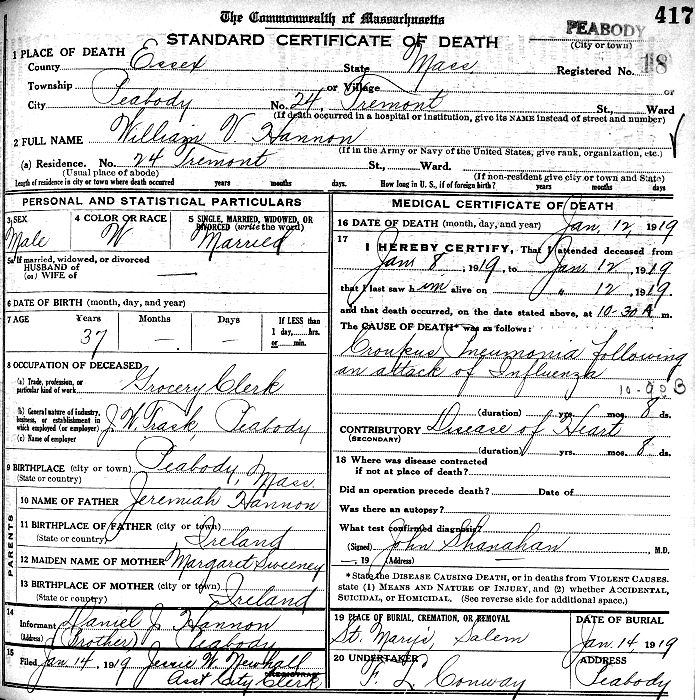 417
The Commonwealth of Massachusetts
STANDARD CERTIFICATE OF DEATH
PEABODY
(City or town)
1 PLACE OF DEATH
County Essex State Mass Registered No. 18
Township or Village or
City Peabody No. 24 Tremont St., Ward
(If death occurred in a hospital or institution, give its NAME instead of street and number)
2 FULL NAME William V Hannon
(If in the Army or Navy of the United States, give rank, organization, etc.)
(a) Residence. No. 24 Tremont St., Ward.
(Usual place of abode) (If non-resident give city or town and State)
Length of residence in city or town where death occurred years months days. How long in U. S., if of foreign birth? years months days
PERSONAL AND STATISTICAL PARTICULARS
3 SEX
Male
4 COLOR OR RACE
W
5 SINGLE, MARRIED, WIDOWED, OR
DIVORCED (write the word)
Married
5a If married, widowed, or divorced
HUSBAND of
(or) WIFE of
6 DATE OF BIRTH (month, day, and year)
7 AGE Years Months Days
37 — —
If LESS than
1 day,....hrs.
or ..... min.
8 OCCUPATION OF DECEASED
(a) Trade, profession, or
particular kind of work Grocery Clerk
(b) General nature of industry,
business, or establishment in
which employed (or employer) J. W. Trask, Peabody
(c) Name of employer
9 BIRTHPLACE (city or town) Peabody, Mass
(State or country)
PARENTS
10 NAME OF FATHER Jeremiah Hannon
11 BIRTHPLACE OF FATHER (city or town)
(State or country) Ireland
12 MAIDEN NAME OF MOTHER Margaret Sweeney
13 BIRTHPLACE OF MOTHER (city or town)
(State or country) Ireland
14
Informant Daniel J. Hannon
(Address) (Brother) Peabody
15
Filed Jan. 14, 1919 Jessie W. Newhall
REGISTRAR
Asst City Clerk
MEDICAL CERTIFICATE OF DEATH
16 DATE OF DEATH (month, day, and year) Jan. 12, 1919
17
I HEREBY CERTIFY, That I attended deceased from
Jan. 8, 1919, to Jan. 12, 1919
that I last saw him alive on " 12, 1919.
and that death occurred, on the date stated above, at 10-30 A m.
The CAUSE OF DEATH* was as follows:
Croupus Pneumonia following
an attack of Influenza
(duration) yrs. mos. 8 ds.
CONTRIBUTORY Disease of Heart
(SECONDARY)
(duration) yrs. mos. 8 ds.
18 Where was disease contracted
if not at place of death?
Did an operation precede death? Date of
Was there an autopsy?
What test confirmed diagnosis?
(Signed) John Shanahan M.D.
—, 19 (Address)
* State the DISEASE CAUSING DEATH, or in deaths from VIOLENT CAUSES.
state (1) MEANS AND NATURE OF INJURY, and (2) whether ACCIDENTAL,
SUICIDAL, or HOMICIDAL. (See reverse side for additional space.)
19 PLACE OF BURIAL, CREMATION, OR REMOVAL
St. Mary's, Salem
DATE OF BURIAL
Jan. 14, 1919
20 UNDERTAKER
F. L. Conway
ADDRESS
Peabody